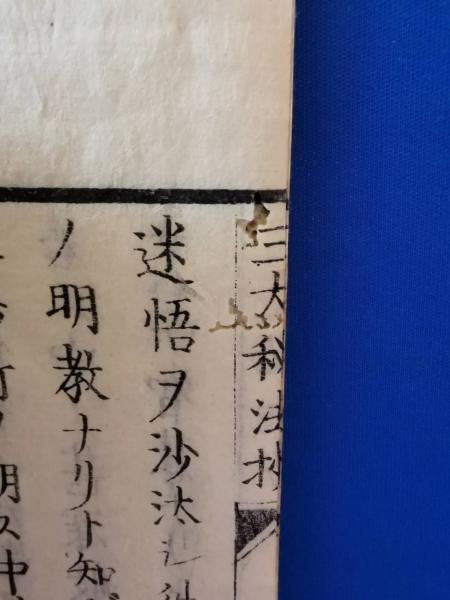 三大秘法抄
迷悟ヲ沙汰シ
ノ明教ナリト知
明ス中